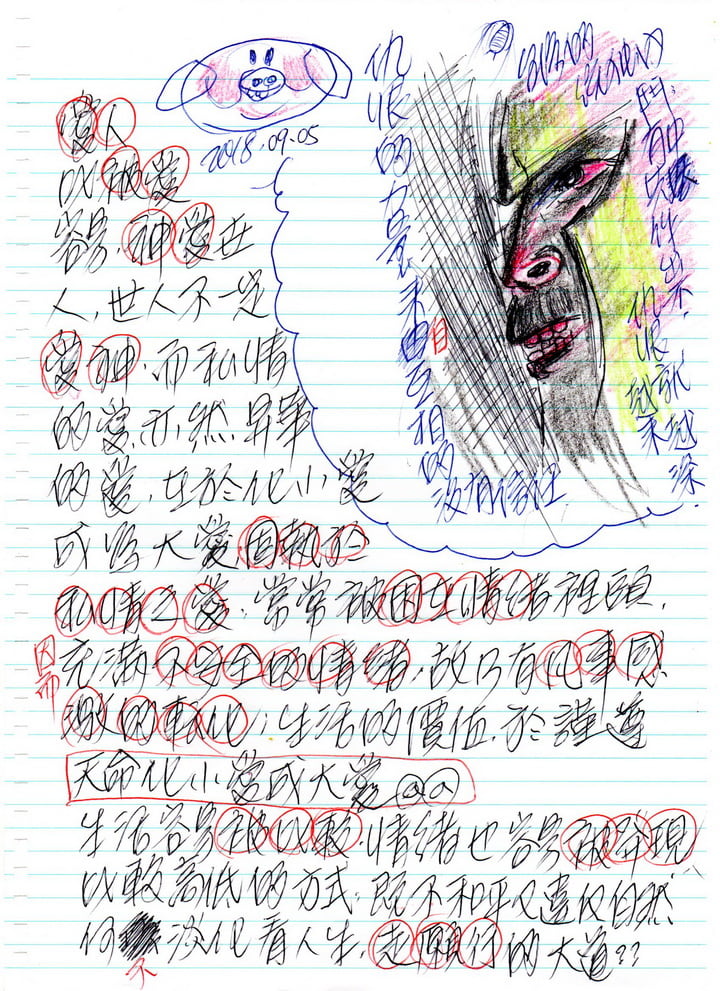 2018.09.05
愛人
比被愛
容易.神愛世
人,世人不一定
愛神.而私情
的愛.亦然.昇華
的愛.在於化小愛
成為大愛因執於
私情之愛.常常被困在情緒裡頭.
因而
充滿不安全的情緒.故乃有凡事感
激的轉化;生活的價值.於謹遵
天命化小愛成大愛
生活容易被比較.情緒也容易被發現
比較高低的方式.既不和平又違反自然
何 淡化看人生.起願行的大道??
不
仇恨的力量
來自互相的
沒有信任
仇恨就越來越深.